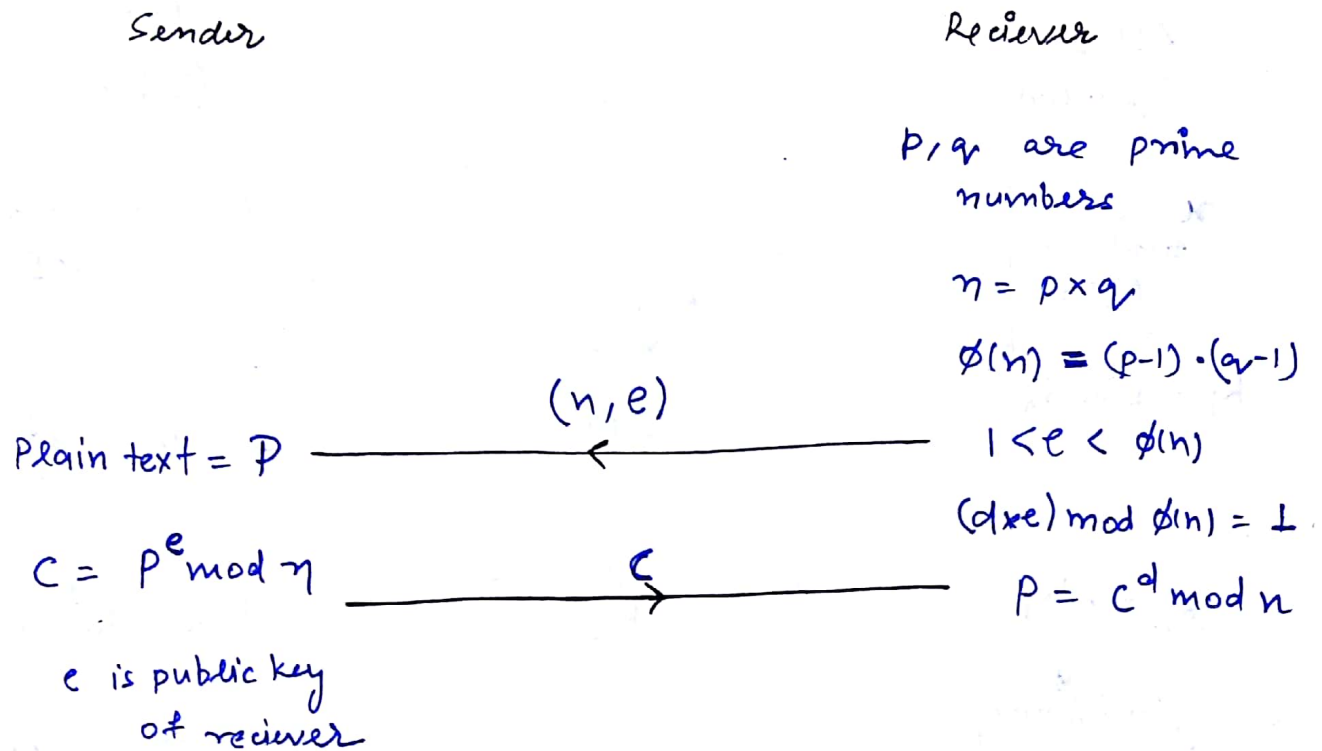 Sender Reciever
p, q are prime
numbers
n = p × q
ϕ(n) = (p-1) · (q-1)
(n, e)
Plain text = P 1 < e < ϕ(n)
(d×e) mod ϕ(n) = 1
C = P^e mod n C P = C^d mod n
e is public key
of reciever